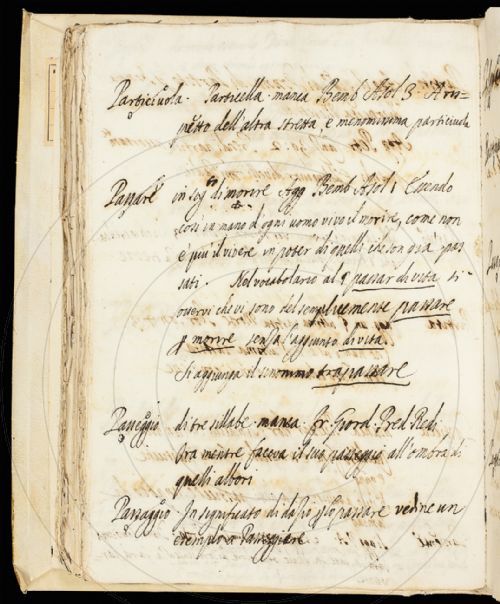 Particiuola. Particella. manca Bemb Asol 3. A ris-
petto dell'altra stretta, e menomissima particiuola
Passare in sig.to di morire Agg Bemb Asol 1 Essendo
così in mano d'ogni uomo vivo il morire, come non
è più il vivere in poter di quelli che son già pas
sati. Nel vocabolario al § passar di vita si
osservi che vi sono del semplicemente passare
p morire senza l'aggiunto di vita
Si aggiunga il sinonimo trapassare
Passeggio di tre sillabe. manca. Fr. Giord. Pred. Red.
Ora mentre faceva il suo passeggio all'ombra di
quelli albori
Passaggio In significato di dazio p lo passare vedine un
esempio a Passeggiare